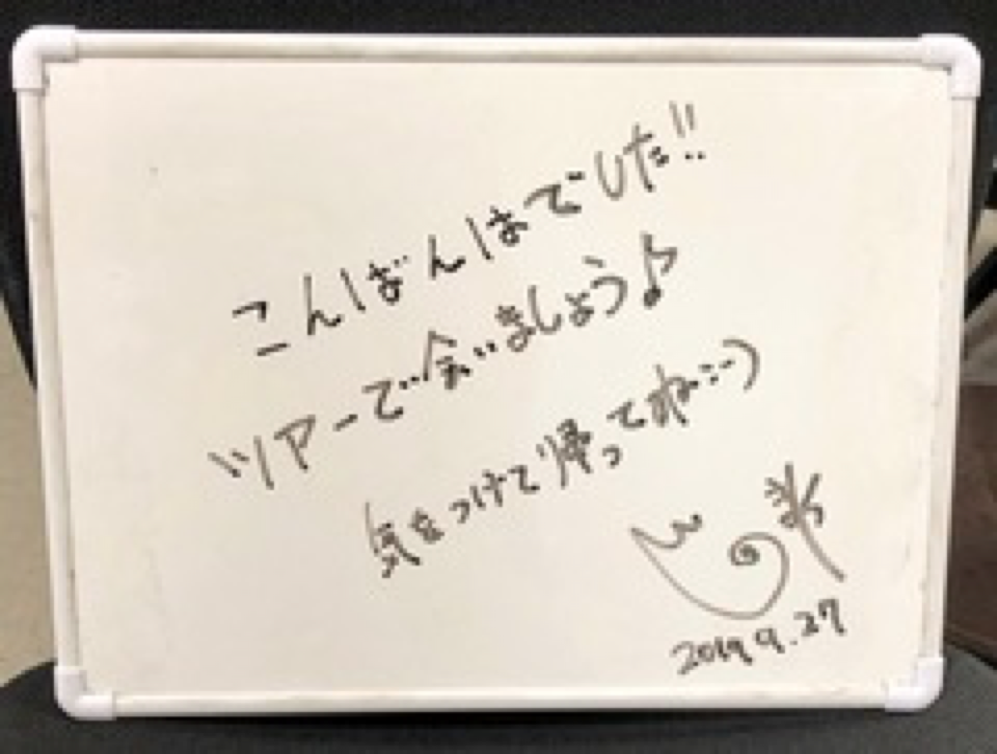 こんばんはでした!!
ツアーで会いましょう♪
気をつけて帰ってね:-)
2019.9.27